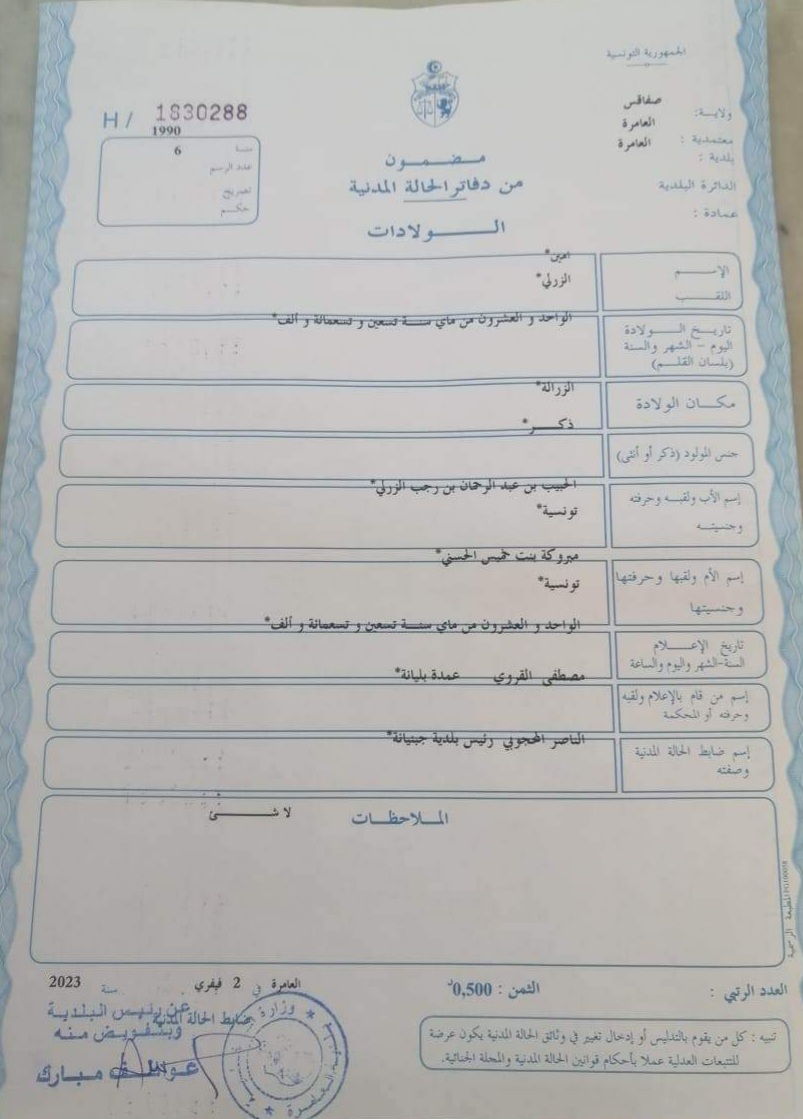 الجمهورية التونسية
ولاية: صفاقس
معتمدية : العامرة
بلدية : العامرة
الدائرة البلدية
عمادة :
H / 1830288
1990
سنة 6
عدد الرسم
تصريح
حكم
مضمون
من دفاتر الحالة المدنية
الولادات
الإسم
امين*
اللقب
الزرلي*
تاريخ الولادة
اليوم - الشهر والسنة
(بلسان القلم)
الواحد و العشرون من ماي سنة تسعين و تسعمائة و ألف*
مكان الولادة
الزرالة*
جنس المولود (ذكر أو أنثى)
ذكر*
إسم الأب ولقبه وحرفته
وجنسيته
الحبيب بن عبد الرحمان بن رجب الزرلي*
تونسية*
إسم الأم ولقبها وحرفتها
وجنسيتها
مبروكة بنت خميس الحسني*
تونسية*
تاريخ الإعلام
السنة-الشهر واليوم والساعة
الواحد و العشرون من ماي سنة تسعين و تسعمائة و ألف*
إسم من قام بالإعلام ولقبه
وحرفته أو المحكمة
مصطفى القروي عمدة بليانة*
إسم ضابط الحالة المدنية
وصفته
الناصر المحجوبي رئيس بلدية جبنيانة*
الملاحظات
لا شئ
المطبعة الرسمية
العدد الرتبي :
الثمن : 0,500د
العامرة في 2 فيفري سنة 2023
ضابط الحالة المدنية
عن رئيس البلدية
وبتفويض منه
مبارك
وزارة
تنبيه : كل من يقوم بالتدليس أو إدخال تغيير في وثائق الحالة المدنية يكون عرضة
للتتبعات العدلية عملا بأحكام قوانين الحالة المدنية والمجلة الجنائية.